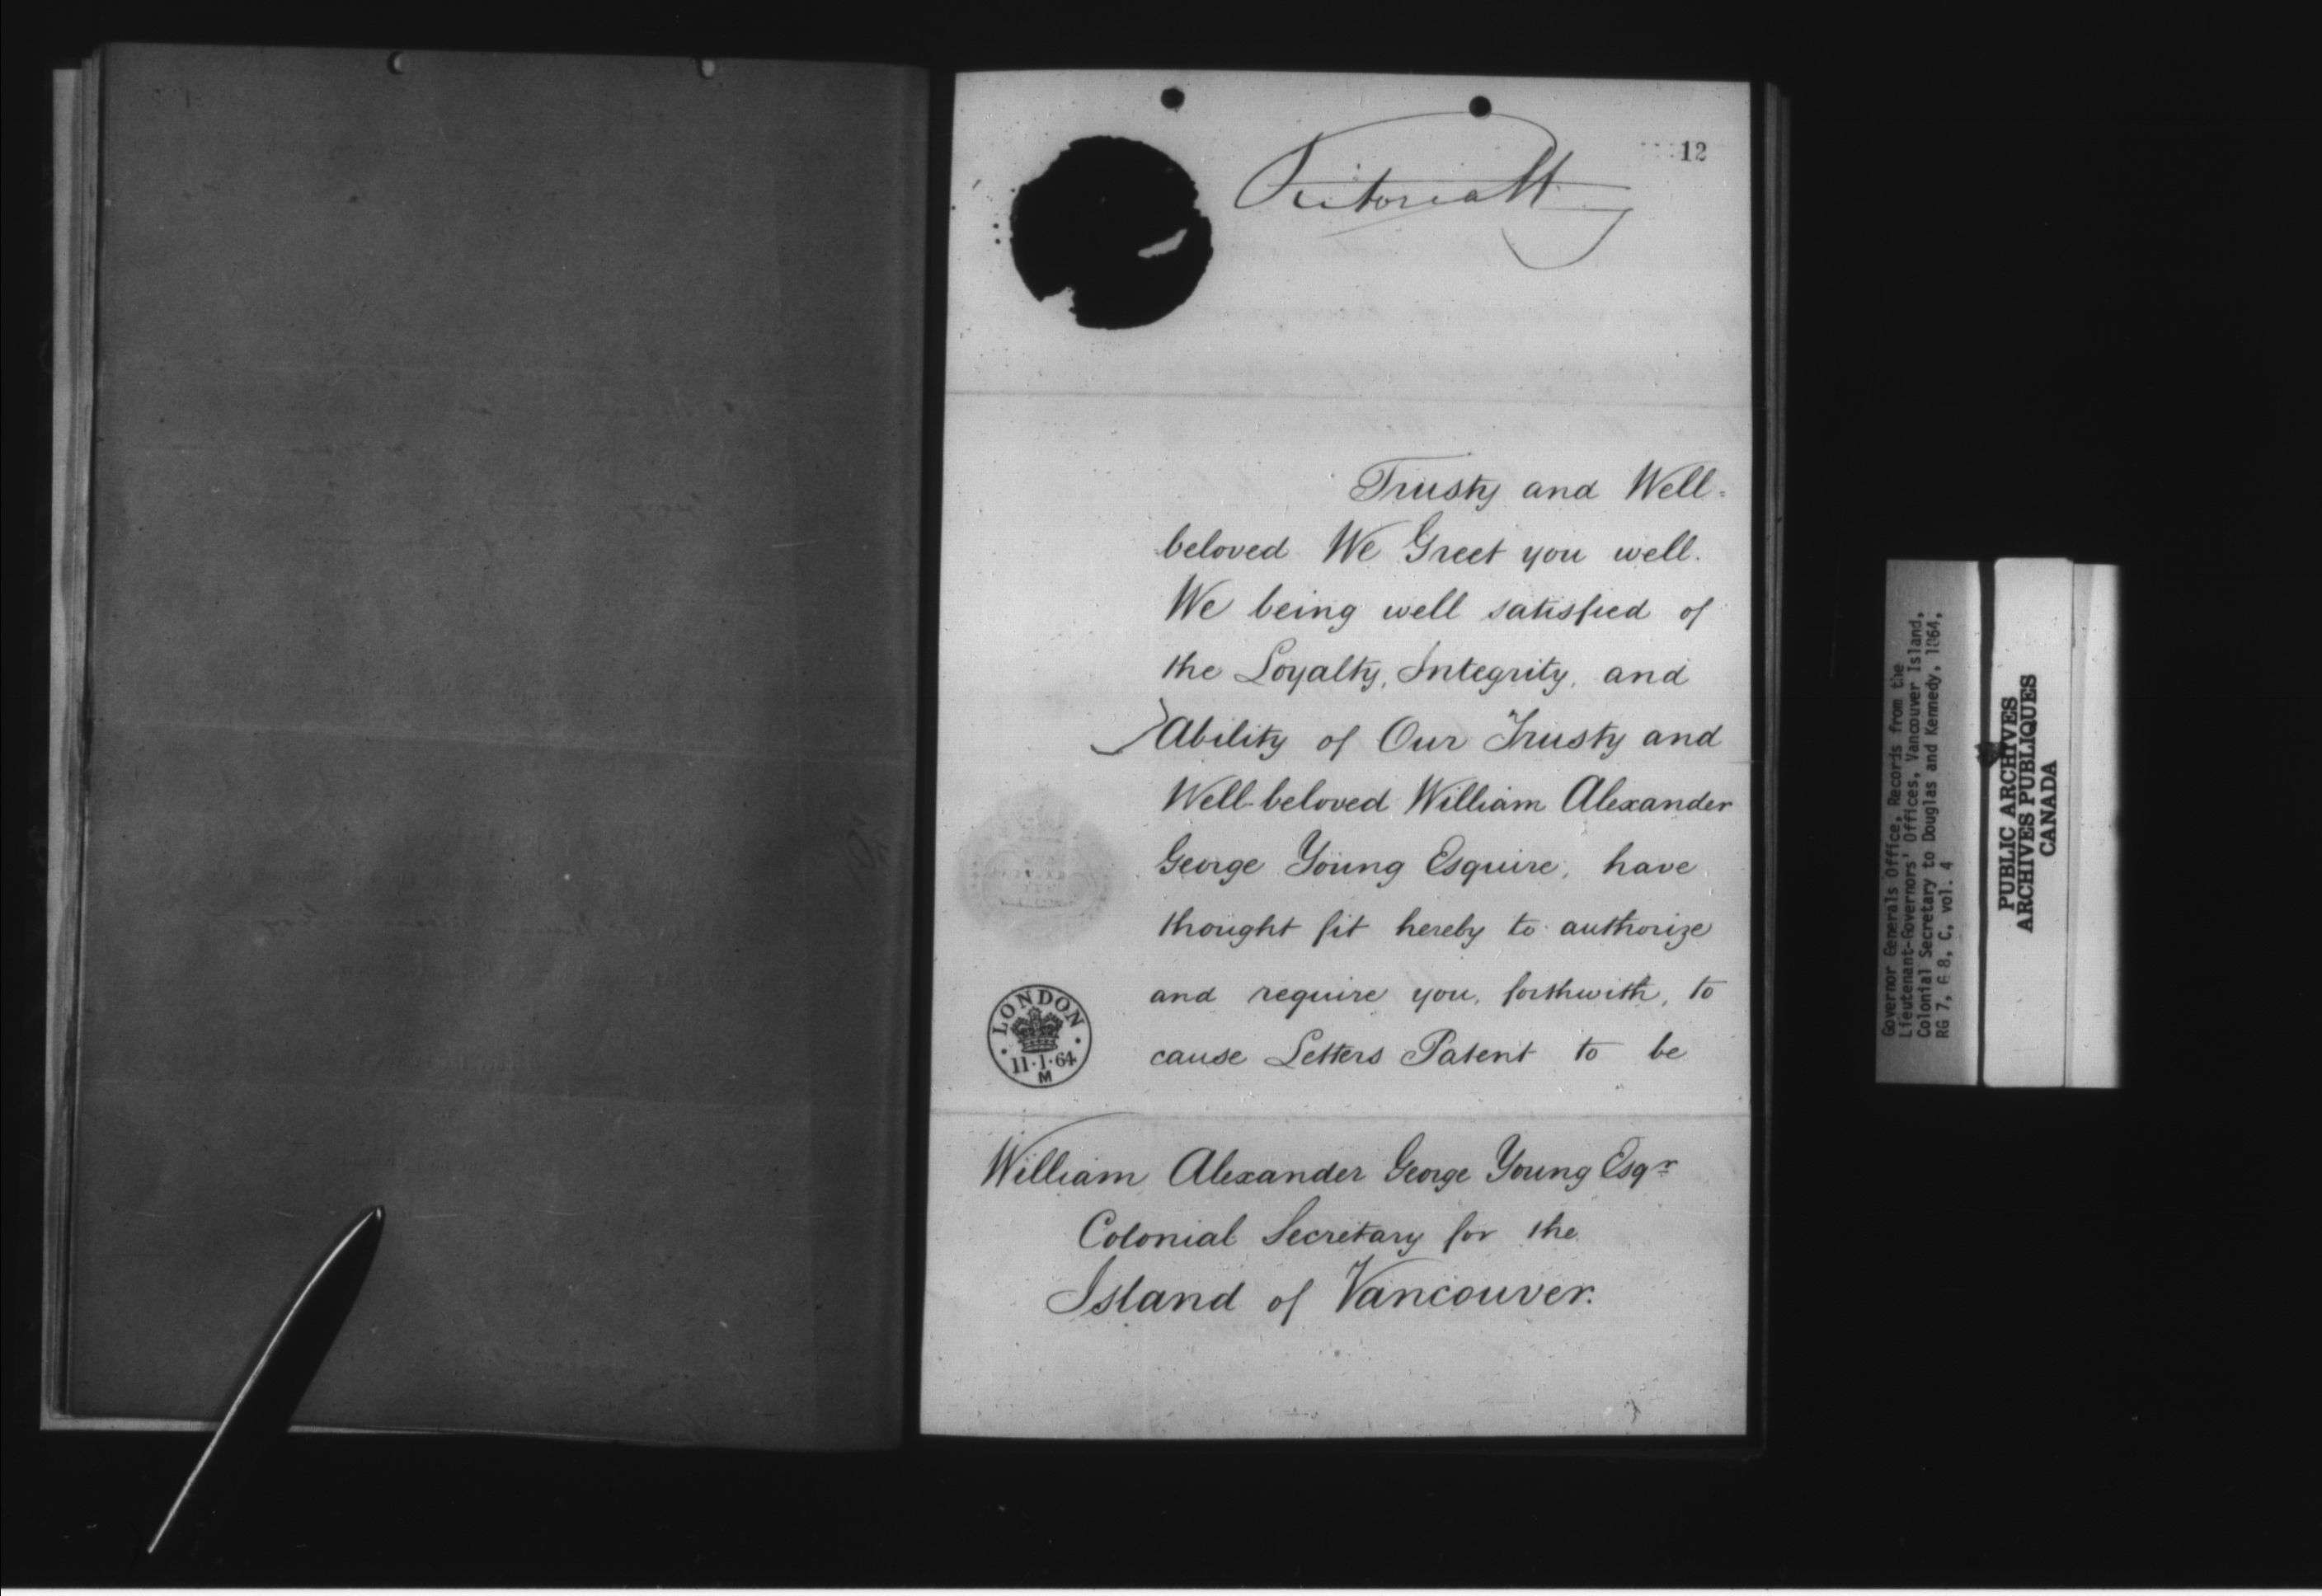 12
Victoria R
Trusty and Well=
beloved We Greet you well.
We being well satisfied of
the Loyalty, Integrity, and
Ability of Our Trusty and
Well-beloved William Alexander
George Young Esquire, have
thought fit hereby to authorize
and require you, forthwith, to
cause Letters Patent to be
LONDON
11·1·64
M
William Alexander George Young Esqr
Colonial Secretary for the
Island of Vancouver.
Governor Generals Office, Records from the
Lieutenant-Governors' Offices, Vancouver Island,
Colonial Secretary to Douglas and Kennedy, 1864,
RG 7, G 8, C, vol. 4
PUBLIC ARCHIVES
ARCHIVES PUBLIQUES
CANADA